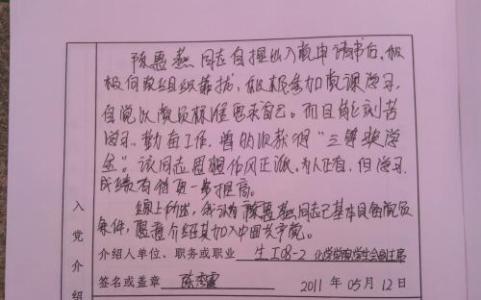 陈恩燕同志自提出入党申请书后，积
极向党组织靠拢，积极参加党课学习，
自觉以党员标准要求自己。而且能刻苦
学习、勤奋工作，曾多次获得“三等奖学
金”。该同志思想作风正派，为人正直，但学习
成绩有待进一步提高。
综上所述，我认为陈恩燕同志已基本具备党员
条件，愿意介绍其加入中国共产党。
入
党
介
绍
介绍人单位、职务或职业 生工08-2 化学学院学生会副主席
签名或盖章
2011 年 05 月 12 日